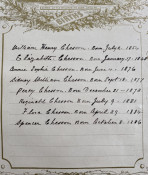 BIRTHS
William Henry Chesson Born July 2. 18
Elizabeth Chesson Born January 17. 1848
Annie Sophia Chesson Born June 1876
Sidney William Chesson Born Sept 18. 1877
Percy Chesson Born December 21 - 1879
Reginald Chesson Born July 9 - 1881
Flora Chesson Born April 29 1884
Spencer Chesson Born October 8. 1886